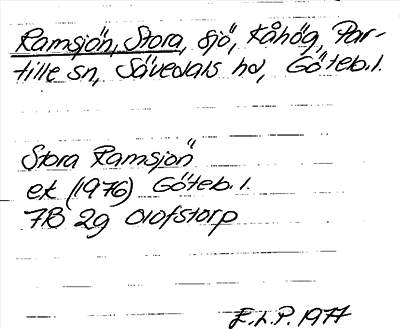 Ramsjön, Stora, sjö, Kåhög, Par-
tille sn, Sävedals hd, Göteb. l.
Stora Ramsjön
ek (1976) Göteb. l.
7B 2g Olofstorp
E.L.P. 1977